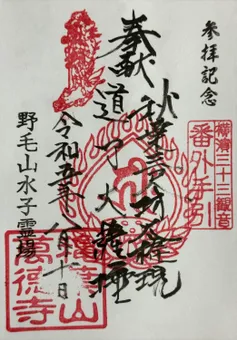 参拝記念
横濱三十三観音
番外手引
奉献
秋葉三尺坊大権現
道了大権現
令和五年八月十日
野毛山水子霊場
萬徳寺